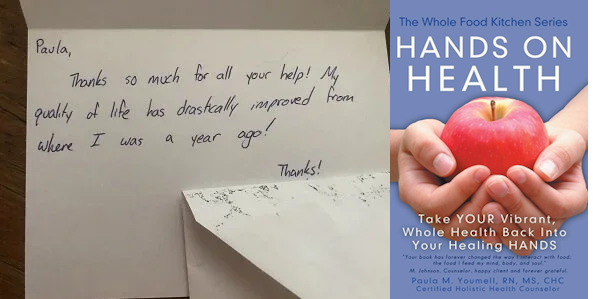 Paula,
Thanks so much for all your help! My
quality of life has drastically improved from
where I was a year ago!
Thanks!
The Whole Food Kitchen Series
HANDS ON
HEALTH
Take YOUR Vibrant,
Whole Health Back Into
Your Healing HANDS
"Your book has forever changed the way I interact with food,
the food I feed my mind, body, and soul."
M. Johnson, Counselor, happy client and forever grateful.
Paula M. Youmell, RN, MS, CHC
Certified Holistic Health Counselor